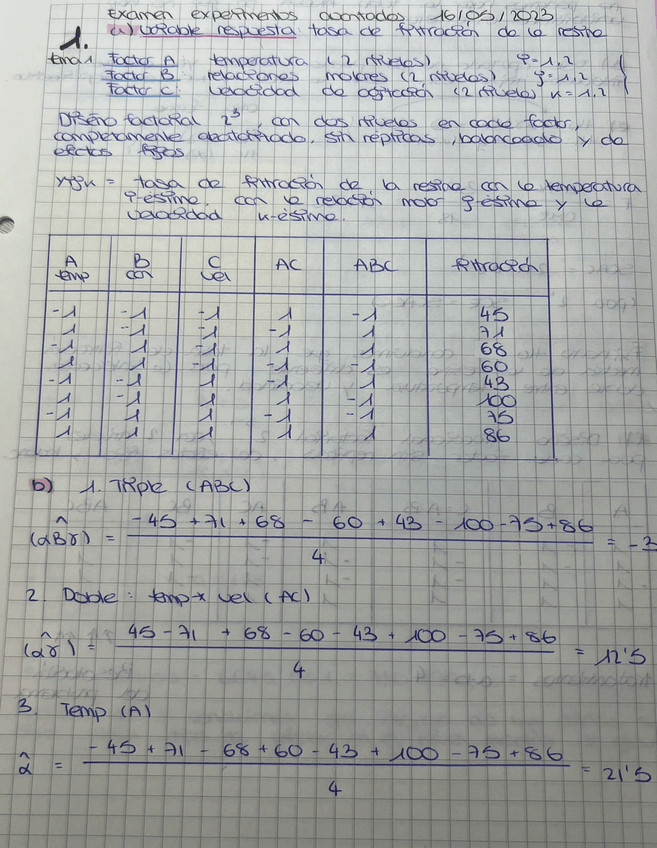 Examen experimentos apontados 16/05/2023
1. a) variable respuesta tasa de filtración de la resine
tema 1 Factor A temperatura (2 niveles) i=1,2
Factor B relaciones molores (2 niveles) j=1,2
Factor C velocidad de agitación (2 niveles) k=1,2
Diseño factorial 2³, con dos niveles en cade factor,
completamente aleatorizado, sin réplicas, balanceado y de
efectos fijos
yijk = tasa de filtración de la resine con la temperatura
i-ésime, con la relación molor j-ésime y la
velocidad k-ésime.
A temp B con C vel AC ABC filtración
-1 -1 -1 1 -1 45
1 -1 -1 -1 1 71
-1 1 -1 1 1 68
1 1 -1 -1 -1 60
-1 -1 1 -1 1 43
1 -1 1 1 -1 100
-1 1 1 -1 -1 75
1 1 1 1 1 86
b) 1. Triple (ABC)
(α̂βγ) = (-45 + 71 + 68 - 60 + 43 - 100 - 75 + 86) / 4 = -3
2. Doble: temp x vel (AC)
(α̂γ) = (45 - 71 + 68 - 60 - 43 + 100 - 75 + 86) / 4 = 12'5
3. Temp (A)
α̂ = (-45 + 71 - 68 + 60 - 43 + 100 - 75 + 86) / 4 = 21'5